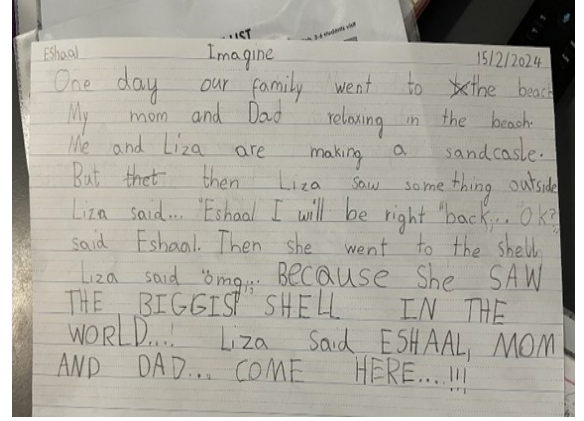 LIST
3-6 students visit
Eshaal Imagine 15/2/2024
One day our family went to the beach
My mom and Dad relaxing in the beach.
Me and Liza are making a sandcasle.
But thet then Liza saw something outside
Liza said... "Eshaal I will be right "back... "Ok?
said Eshaal. Then she went to the shell,
Liza said "omg,,, BECAUSE She SAW
THE BIGGIST SHELL IN THE
WORLD...! Liza Said ESHAAL, MOM
AND DAD... COME HERE....!!!